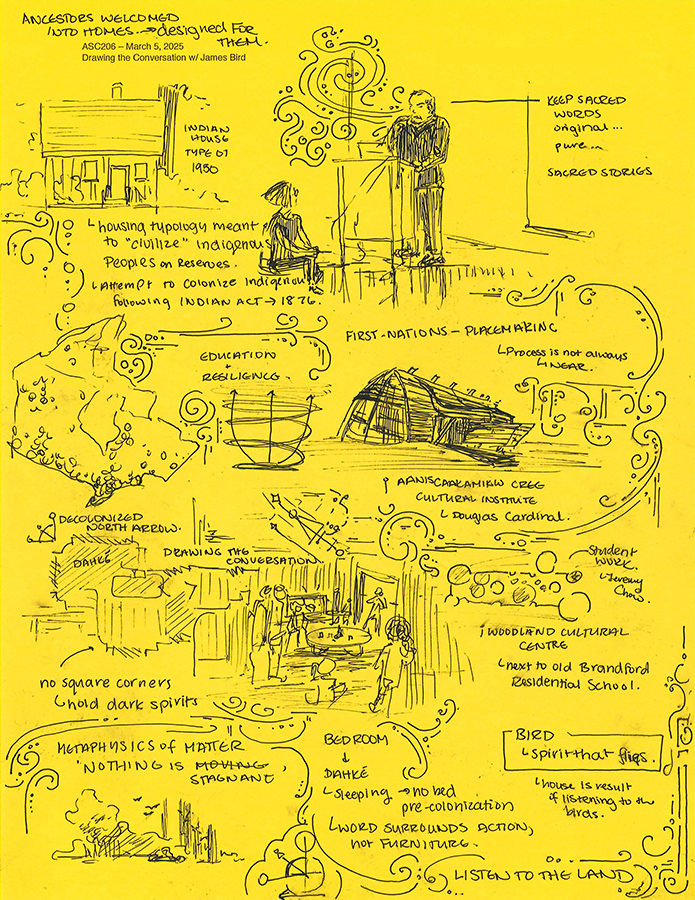 ANCESTORS WELCOMED
INTO HOMES. → designed FOR
THEM.
ASC206 – March 5, 2025
Drawing the Conversation w/ James Bird
INDIAN
HOUSE
TYPE 01
1950
KEEP SACRED
WORDS
original...
pure...
SACRED STORIES
housing typology meant
to "civilize" indigenous
Peoples on Reserves.
Attempt to colonize indigenous
following INDIAN ACT → 1876.
FIRST-NATIONS – PLACEMAKING
Process is not always
LINEAR.
EDUCATION
+
RESILIENCE.
AANISCAAKAMIKW CREE
CULTURAL INSTITUTE
Douglas Cardinal.
DECOLONIZED
NORTH ARROW.
DAHKÉ
DRAWING THE
CONVERSATION
Student
WORK.
Jeremy
Chow.
WOODLAND CULTURAL
CENTRE
next to old Brandford
Residential School.
no square corners
hold dark spirits
METAPHYSICS of MATTER
'NOTHING IS MOVING'
STAGNANT
BEDROOM
↓
DAHKÉ
sleeping → no bed
pre-colonization
WORD SURROUNDS ACTION,
not FURNITURE.
BIRD
spirit that flies.
house is result
of listening to the
birds.
LISTEN TO THE LAND